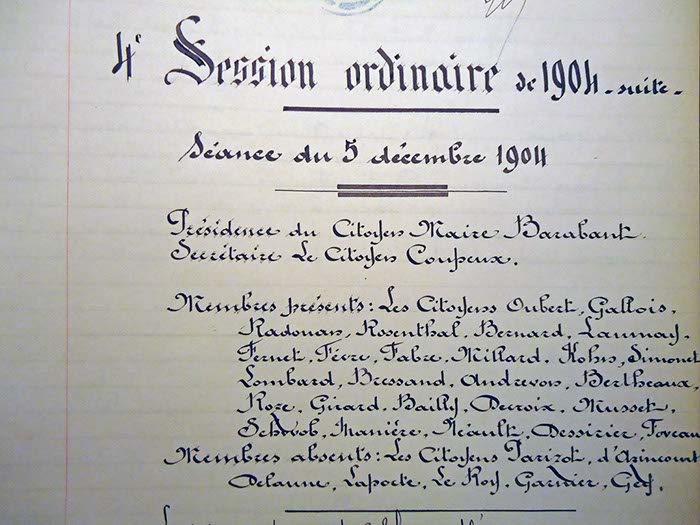 4e Session ordinaire de 1904 - suite -
Séance du 5 décembre 1904
Présidence du Citoyen Maire Barabant.
Secrétaire Le Citoyen Coupeux.
Membres présents: Les Citoyens Oubert, Gallois,
Radouan, Rosenthal, Bernard, Launay,
Fernet, Fèvre, Fabre, Millard, Kohn, Simonet
Lombard, Bressand, Andrevon, Bertheaux,
Roze, Girard, Bailly, Decroix, Musset,
Schwob, Manière, Réault, Dessirier, Foveau
Membres absents: Les Citoyens Parizot, d'Azincourt
Delaune, Laporte, Le Roy, Garnier, Gey.